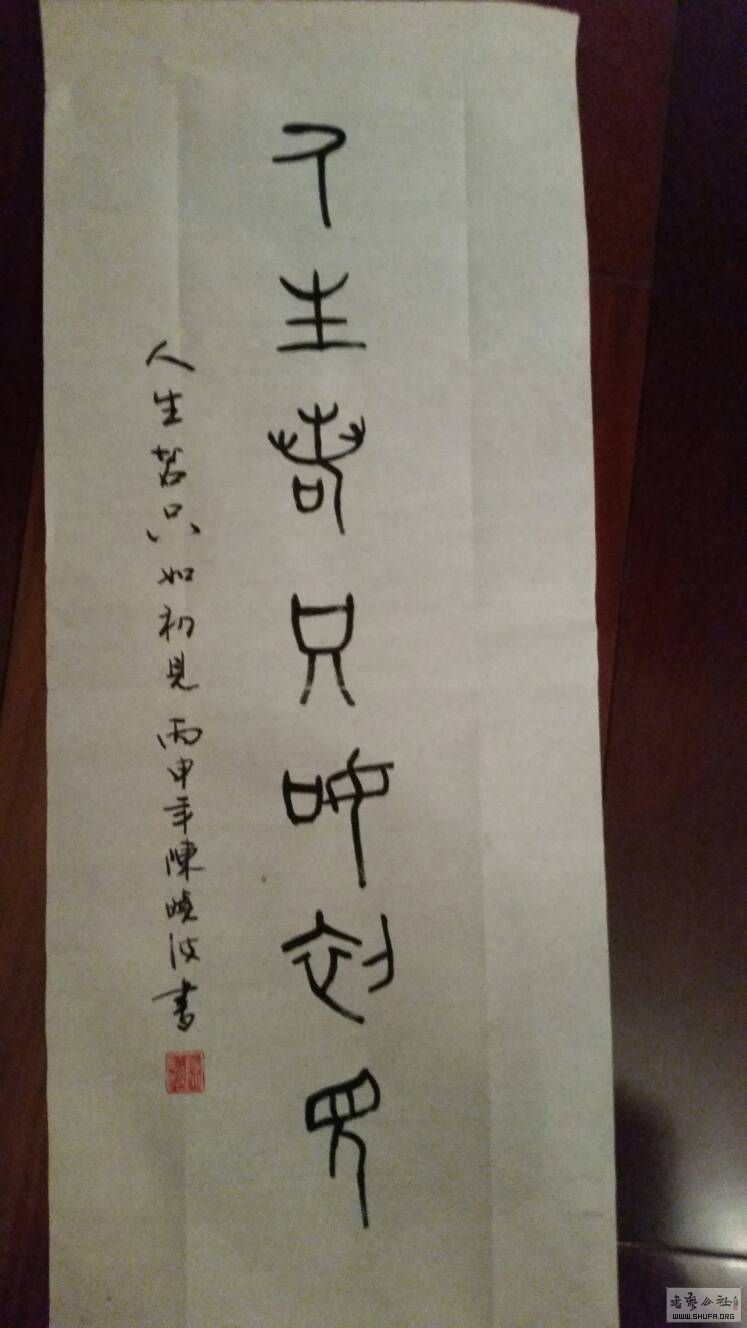 人生若只如初见
人生若只如初見 丙申年陳曉波書
书艺公社
WWW.SHUFA.ORG